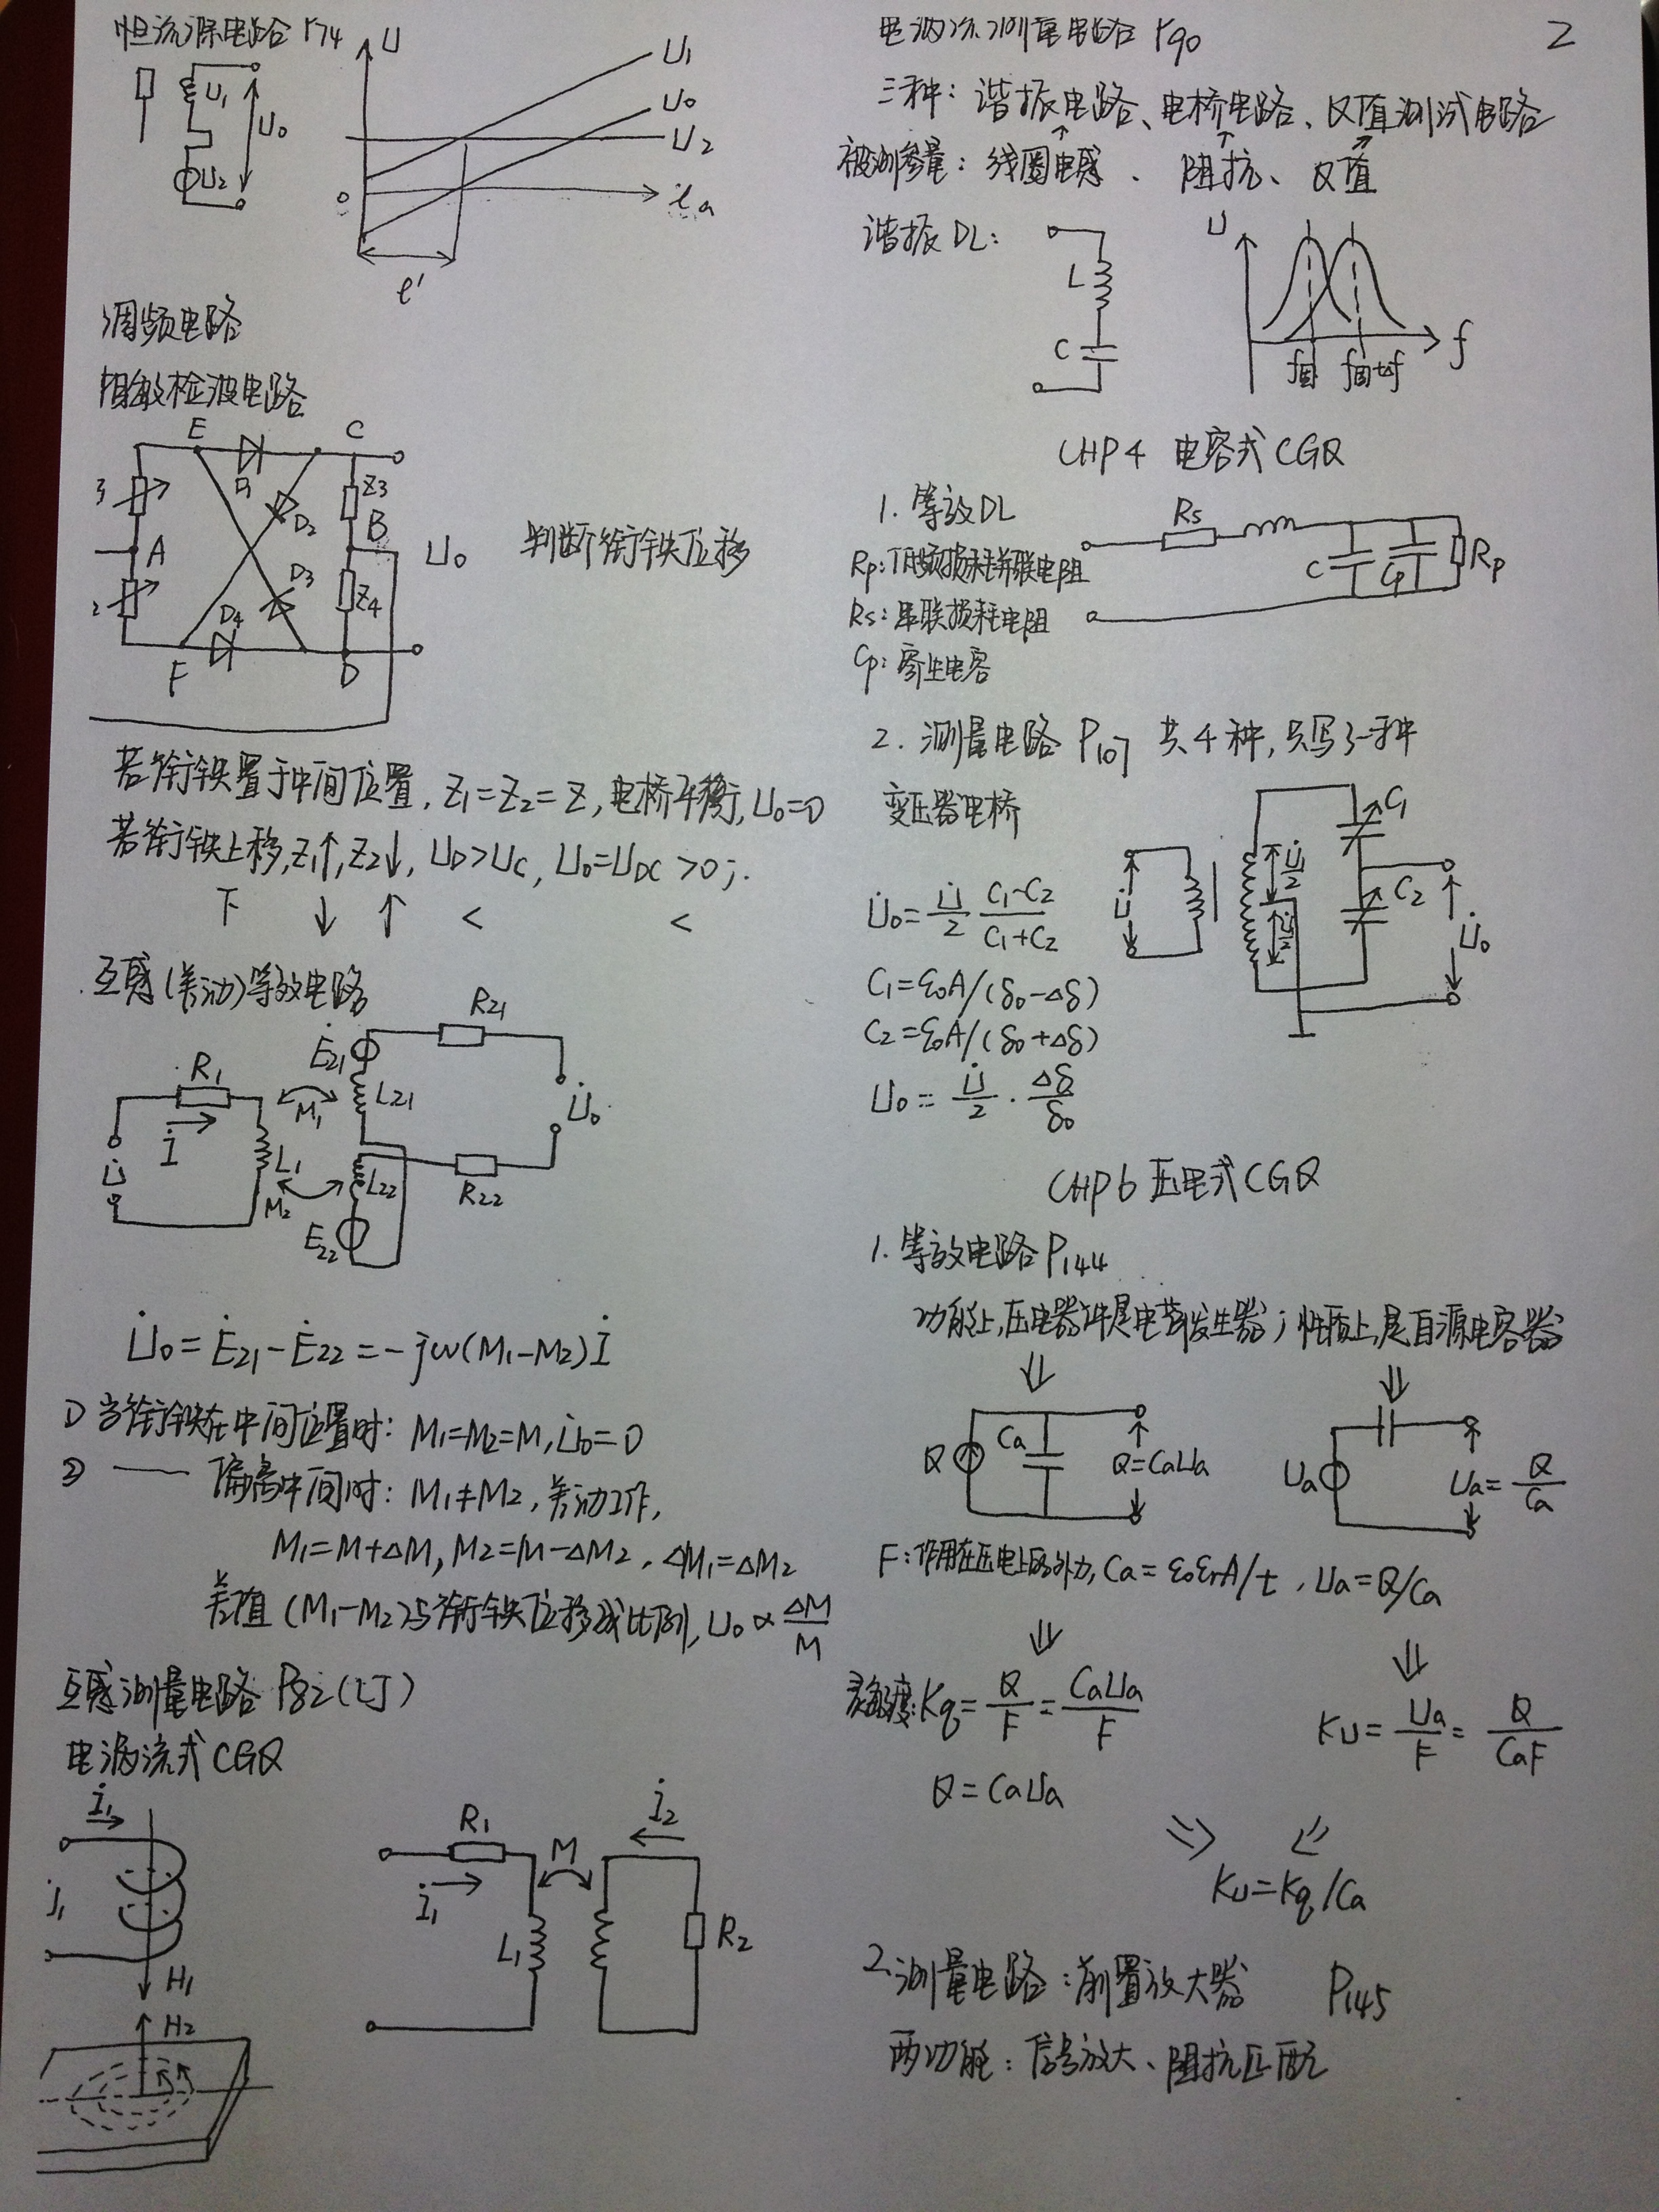 恒流源电路 P74
U
U1
U0
U2
U1
U0
U2
0
la
l'
调频电路
相敏检波电路
E
C
D1
Z3
D2
B
A
U0
判断衔铁位移
D3
D4
Z4
2
F
D
若衔铁置于中间位置, Z1=Z2=Z, 电桥平衡, U0=0
若衔铁上移, Z1↑, Z2↓, UD>UC, U0=UDC>0;
下 ↓ ↑ < <
互感(差动)等效电路
R21
Ė21
R1
M1
L21
U̇0
İ
U̇
L1
M2
L22
R22
E22
U̇0=Ė21-Ė22=-jω(M1-M2)İ
① 当衔铁在中间位置时: M1=M2=M, U̇0=0
② —— 偏离中间时: M1≠M2, 差动工作,
M1=M+ΔM, M2=M-ΔM2, ΔM1=ΔM2
差值(M1-M2)与衔铁位移成比例, U0∝ΔM/M
互感测量电路 P82(LJ)
电涡流式CGQ
İ1
İ1
H1
H2
R1
M
İ2
İ1
L1
R2
2
电涡流测量电路 P90
三种: 谐振电路、电桥电路、Q值测试电路
被测参量: 线圈电感、阻抗、Q值
谐振DL:
L
C
U
f
f固
f固+Δf
CHP4 电容式CGQ
1. 等效DL
Rs
Rp: 低频损耗并联电阻
C
Cp
Rp
Rs: 串联损耗电阻
Cp: 寄生电容
2. 测量电路 P107 共4种, 只写了一种
变压器电桥
C1
U̇/2
C2
U̇
U̇/2
U̇0
U̇0=U̇/2 (C1-C2)/(C1+C2)
C1=ε0A/(δ0-Δδ)
C2=ε0A/(δ0+Δδ)
U0=U̇/2·Δδ/δ0
CHP6 压电式CGQ
1. 等效电路 P144
功能上, 压电器件是电荷发生器; 性质上, 是有源电容器
⇓ ⇓
Q
Ca
Q=CaUa
Ua
Ua=Q/Ca
F: 作用在压电上的外力, Ca=ε0εrA/t, Ua=Q/Ca
⇓ ⇓
灵敏度: Kq=Q/F=CaUa/F
KU=Ua/F=Q/CaF
Q=CaUa
KU=Kq/Ca
2. 测量电路: 前置放大器 P145
两功能: 信号放大、阻抗匹配